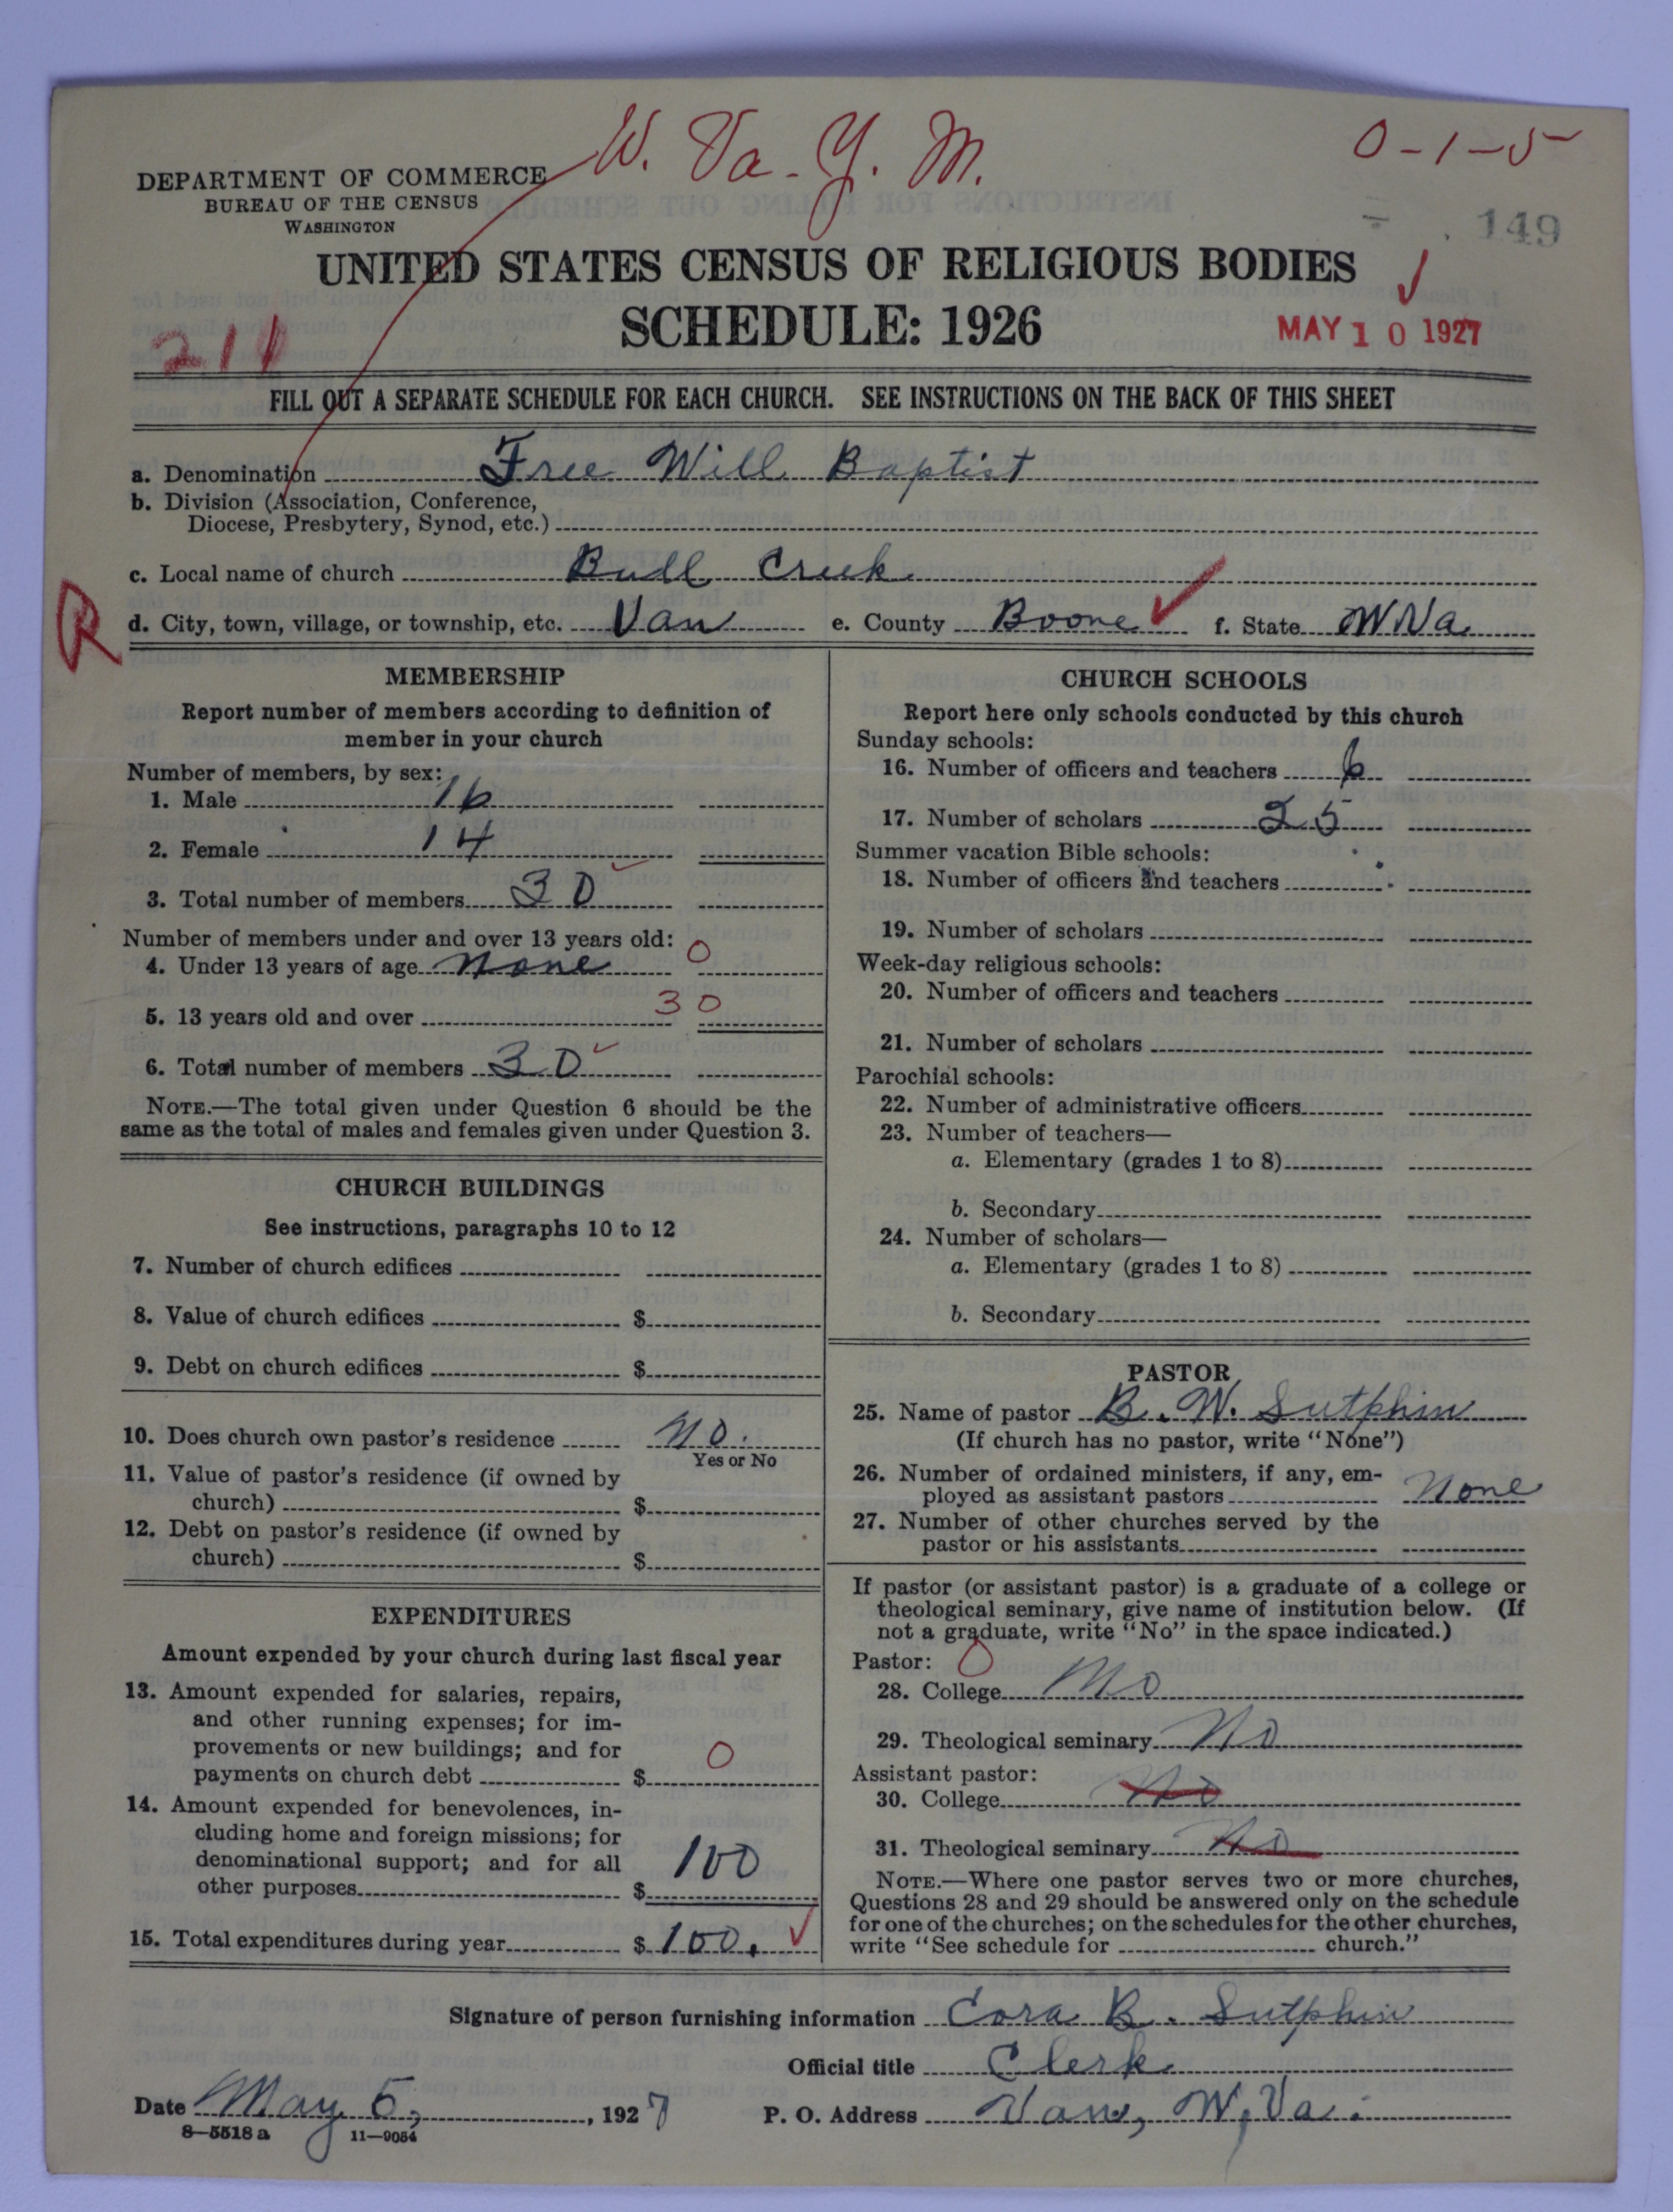 W. Va. Y. M.
0-1-5
DEPARTMENT OF COMMERCE
BUREAU OF THE CENSUS
WASHINGTON
149
UNITED STATES CENSUS OF RELIGIOUS BODIES
SCHEDULE: 1926
211
MAY 10 1927
FILL OUT A SEPARATE SCHEDULE FOR EACH CHURCH. SEE INSTRUCTIONS ON THE BACK OF THIS SHEET
a. Denomination Free Will Baptist
b. Division (Association, Conference,
Diocese, Presbytery, Synod, etc.)
c. Local name of church Bull Creek
R
d. City, town, village, or township, etc. Van e. County Boone f. State W Va
MEMBERSHIP
Report number of members according to definition of
member in your church
Number of members, by sex:
1. Male 16
2. Female 14
3. Total number of members 30
Number of members under and over 13 years old:
4. Under 13 years of age None 0
5. 13 years old and over 30
6. Total number of members 30
NOTE.—The total given under Question 6 should be the
same as the total of males and females given under Question 3.
CHURCH BUILDINGS
See instructions, paragraphs 10 to 12
7. Number of church edifices
8. Value of church edifices $
9. Debt on church edifices $
10. Does church own pastor's residence No.
Yes or No
11. Value of pastor's residence (if owned by
church) $
12. Debt on pastor's residence (if owned by
church) $
EXPENDITURES
Amount expended by your church during last fiscal year
13. Amount expended for salaries, repairs,
and other running expenses; for im-
provements or new buildings; and for
payments on church debt $ 0
14. Amount expended for benevolences, in-
cluding home and foreign missions; for
denominational support; and for all
other purposes $ 100
15. Total expenditures during year $ 100.
CHURCH SCHOOLS
Report here only schools conducted by this church
Sunday schools:
16. Number of officers and teachers 6
17. Number of scholars 25
Summer vacation Bible schools:
18. Number of officers and teachers
19. Number of scholars
Week-day religious schools:
20. Number of officers and teachers
21. Number of scholars
Parochial schools:
22. Number of administrative officers
23. Number of teachers—
a. Elementary (grades 1 to 8)
b. Secondary
24. Number of scholars—
a. Elementary (grades 1 to 8)
b. Secondary
PASTOR
25. Name of pastor B. W. Sutphin
(If church has no pastor, write "None")
26. Number of ordained ministers, if any, em-
ployed as assistant pastors None
27. Number of other churches served by the
pastor or his assistants
If pastor (or assistant pastor) is a graduate of a college or
theological seminary, give name of institution below. (If
not a graduate, write "No" in the space indicated.)
Pastor: 0
28. College No
29. Theological seminary No
Assistant pastor:
30. College No
31. Theological seminary No
NOTE.—Where one pastor serves two or more churches,
Questions 28 and 29 should be answered only on the schedule
for one of the churches; on the schedules for the other churches,
write "See schedule for church."
Signature of person furnishing information Cora B. Sutphin
Official title Clerk
Date May 5, 1927 P. O. Address Van, W, Va.
8—5518a 11—9054